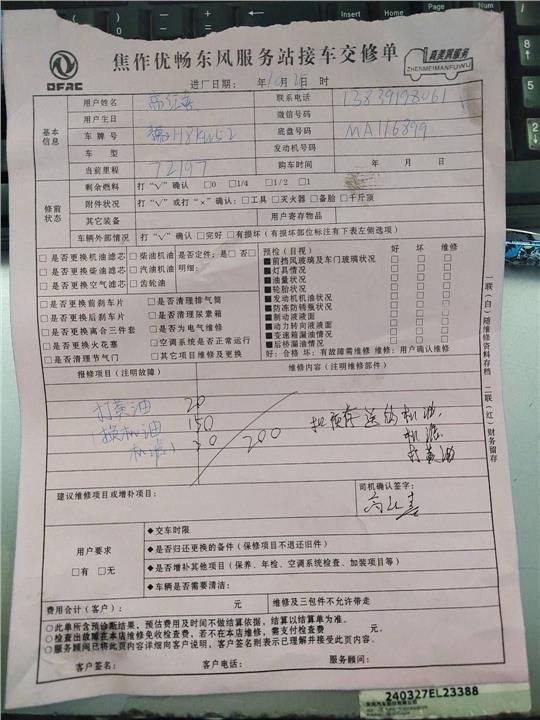 DFAC
焦作优畅东风服务站接车交修单
真美满服务
ZHENMEIMANFUWU
进厂日期： 年10月25日 时
基本信息
用户姓名 联系电话 13839198061
用户生日 微信号码
车牌号 豫H8KW52 底盘号码 MA116899
车型 发动机号码
当前里程 72197 购车时间 年 月 日
修前状态
剩余燃料 打“√”确认 □0 □1/4 □1/2 □1
附件状况 打“√”或打“×”确认：□工具 □灭火器 □备胎 □千斤顶
其它装备 用户寄存物品
车辆外部情况 打“√”确认 □完好 □有损坏（有损坏部位标注有下表左侧选项）
□是否更换机油滤芯 □柴油机油 是否定件：是□ 否□
□是否更换柴油滤芯 □汽油机油 明细：
□是否更换空气滤芯 □齿轮油
□是否更换前刹车片 □是否清理排气筒
□是否更换后刹车片 □是否清理尿素箱
□是否更换离合三件套 □是否为电气维修
□是否更换火花塞 □空调系统是否正常运行
□是否清理节气门 □其它项目维修及更换
预检（目视） 好 坏 维修
■前挡风玻璃及车门玻璃状况 □ □ □
■灯具情况 □ □ □
■油量状况 □ □ □
■轮胎状况 □ □ □
■发动机机油状况 □ □ □
■防冻防锈瓶状况 □ □ □
■制动液液面 □ □ □
■动力转向液液面 □ □ □
■变速箱漏油情况 □ □ □
■后桥漏油情况 □ □ □
好：合格 坏：有故障需维修 维修：用户确认维修
报修项目（注明故障） 维修内容（注明维修部件）
打黄油 20
换机油 150
机滤 30
200
机油
机滤
打黄油
建议维修项目或增补项目：
司机确认签字：
用户要求
□有 □无
◆交车时限
◆是否归还更换的备件（保修项目不退还旧件）
◆是否增补其他项目（保养、年检、空调系统检查、加装项目等）
◆车辆是否需要清洁：
费用合计（客户）： 元 维修及三包件不允许带走
○此单所含预诊断结果，预估费用及时间不做结算依据，结算以结算单为准。
○检查出故障在本店维修免收检查费，若不在本店维修，需支付检查费 元。
○服务顾问已将此页内容详细向客户说明，客户签名则表示已理解并接受此页内容。
客户签名： 客户电话： 服务顾问：
一联（白）随维修资料存档 二联（红）财务留存
240327EL23388
Insert
Home
PgUp